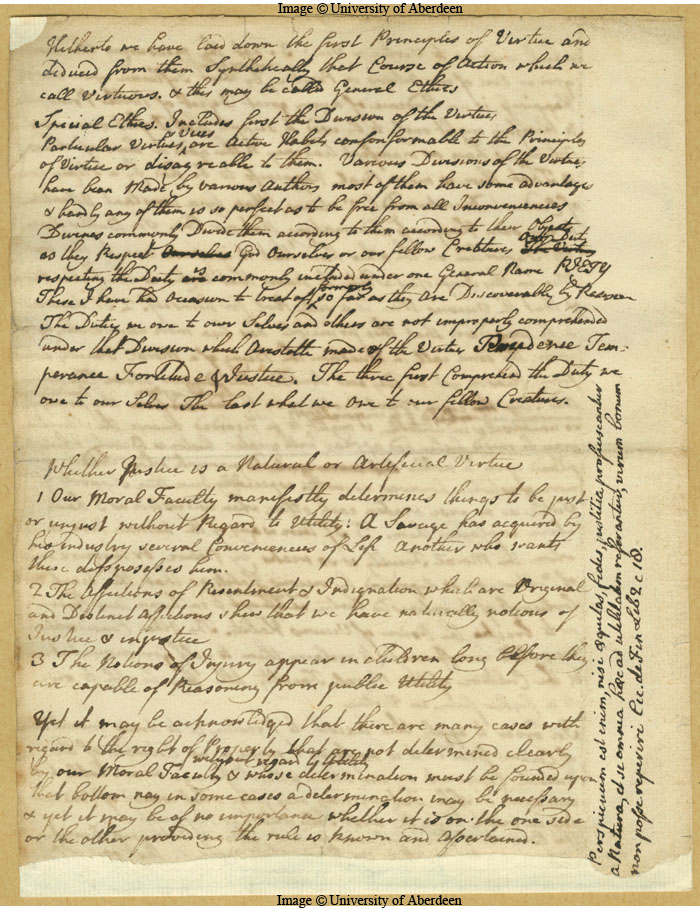 Image © University of Aberdeen
Hitherto we have laid down the first Principles of Virtue and
deduced from them Synthetically that Course of Action which we
call Virtuous. & this may be called General Ethics
Special Ethics. Includes first the Division of the Virtues
Particular Virtues & Vices are Active Habits confonformable to the Principles
of Virtue or disagreable to them. Various Divisions of the Virtues
have been Made by various Authors most of them have some advantages
& hardly any of them is so perfect as to be free from all Inconveniences
Divines commonly Divide them according to them according to their Objects
as they Respect Ourselves God Ourselves or our fellow Creatures
respecting the Deity is commonly included under one General Name PIETY
These I have had Occasion to treat of formerly so far as they are Discoverable by Reason
The Duties we owe to our Selves and others are not improperly comprehended
under that Division which Aristotle made of the Virtues Prudence Tem-
perance Fortitude & Justice. The three first Comprehend the Duty we
owe to our Selves The last what we Owe to our fellow Creatures.
Whether Justice is a Natural or Artificial Virtue
1 Our Moral Faculty manifestly determines things to be just
or unjust without Regard to Utility: A Savage has acquired by
his industry several Conveniences of Life Another who wants
these disposesses him.
2 The Affections of Resentment & Indignation which are Original
and Distinct Affections shew that we have naturally notions of
Justice & injustice
3 The Notions of Injury appear in children long before they
are capable of Reasoning from public Utility
Yet it may be acknowledged that there are many cases with
regard to the right of Property that are not determined clearly
by our Moral Faculty without regard to Utility & whose determination must be founded upon
that bottom nay in some cases a determination may be necessary
& yet it may be of no importance whether it is on the one side
or the other providing the rule is known and assertained.
Perspicuum est enim, nisi equitas, fides, justitia proficiscantur
a Natura, et si omnia hæc ad utilitatem referantur, virum bonum
non posse reperiri. Cic. de Fin Lib 2 c 18.
Image © University of Aberdeen